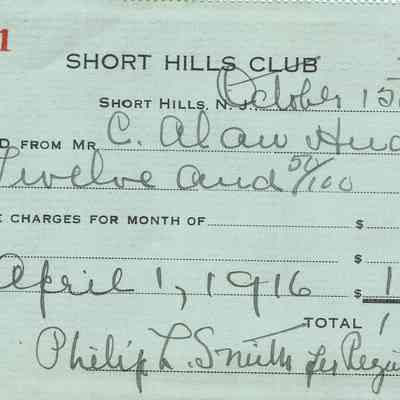 1
SHORT HILLS CLUB
SHORT HILLS, N. J. October 15
D FROM MR. C. Alan Hud
Twelve and 50/100
E CHARGES FOR MONTH OF $
$
April 1, 1916 $ 1
TOTAL 1
Philip L. Smith